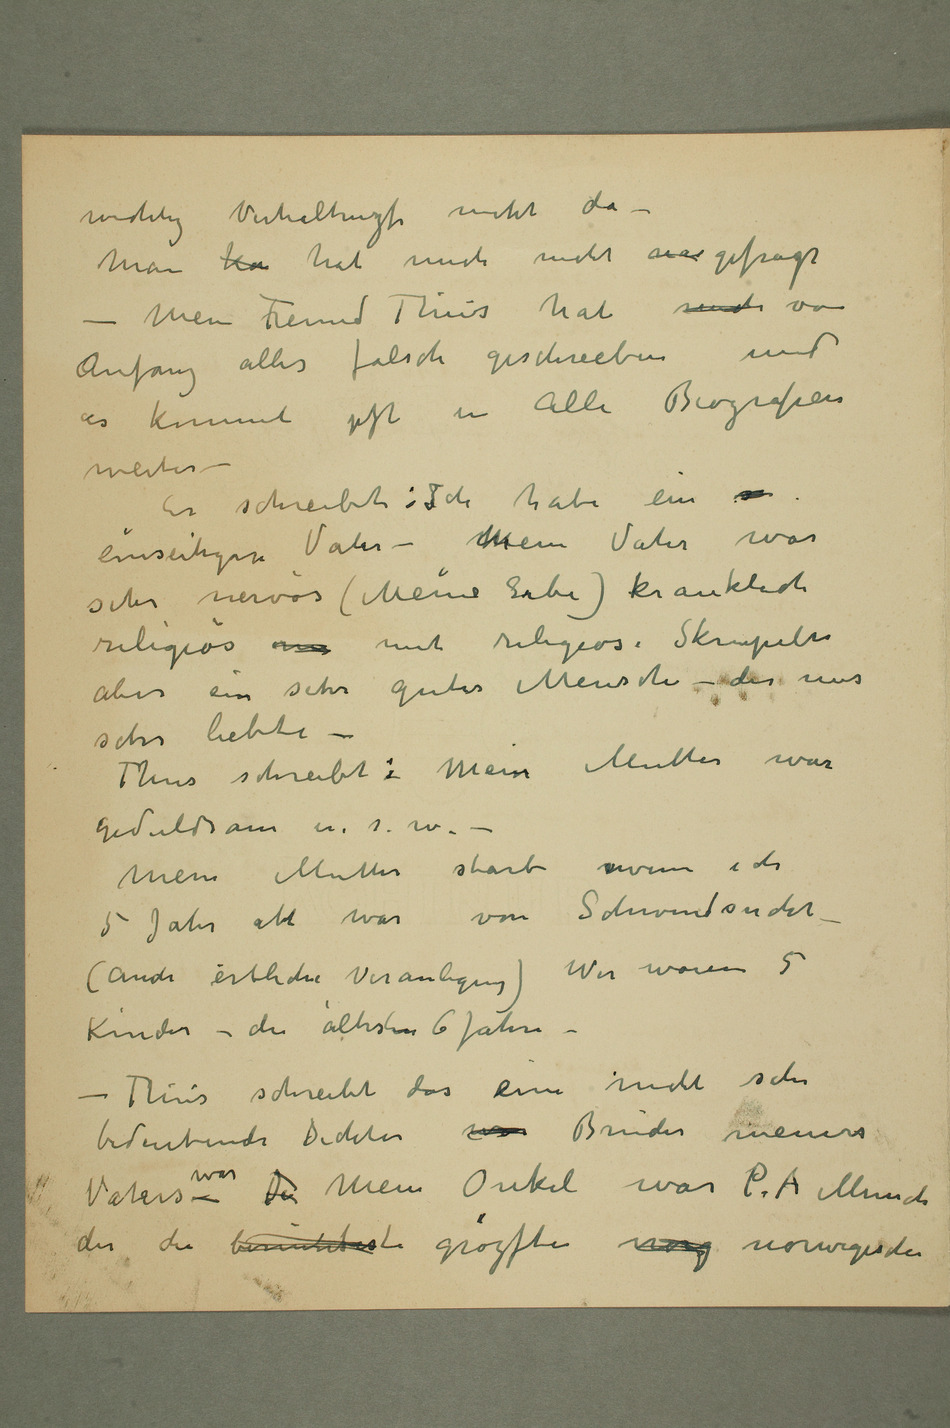 wichtig Verhaltnuzfe nicht da –
Man ka hat mich nicht aus gefragt
– Mein Freund Thiis hat mich von
Anfang alles falsch geschrieben und
es kommt oft in Alle Biografien
weiter –
Er schreibt: Ich habe ein
einseitigen Vater – Mein Vater war
sehr nervös (Meine Erbe) kranklich
religiös mit religiöse Skrupeln
aber ein sehr guter Mensch – der uns
sehr liebte –
Thiis schreibt: Mein Mutter war
geduldsam u. s. w. –
Mein Mutter starb wenn ich
5 Jahr alt war von Schwindsucht –
(Auch erbliche Veranligung) Wir waren 5
Kinder – die ältesten 6 Jahre –
– Thiis schreibt das eine nicht sehr
bedeutende Dichter war Bruder meines
Vaters war – Der Mein Onkel war P. A Munch
der die berühmteste grözfte norg norwegische